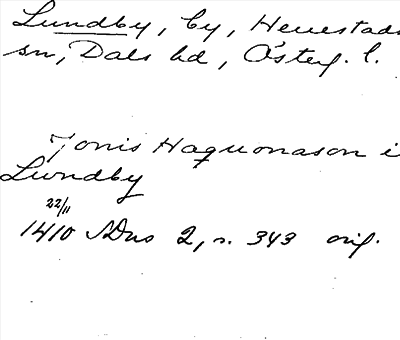 Lundby, by, Herrestads
sn, Dals hd, Österg. l.
Jonis Haquonason i
Lwndby
22/11
1410 SDns 2, s. 343 orig.